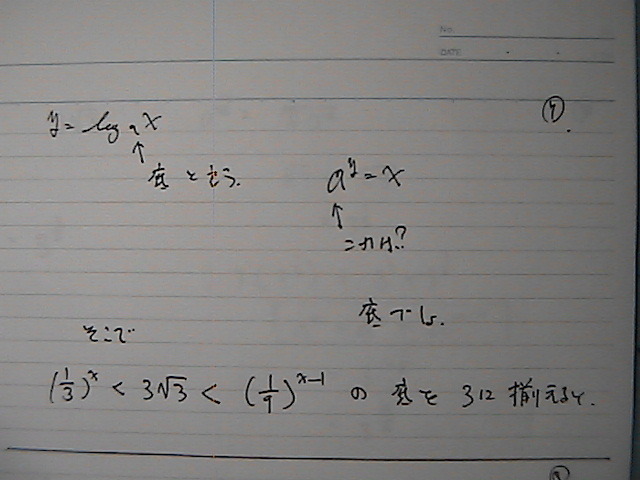 No.
DATE
④.
y = log a x
↑
底 と言う.
a^y = x
↑
これは?
底でしょ.
そこで
(1/3)^x < 3√3 < (1/9)^(x-1) の 底を 3に 揃えると.